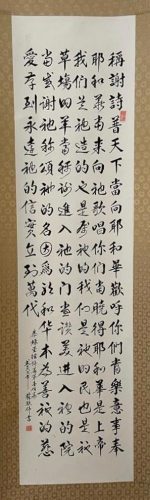 稱謝詩普天下當向耶和華歡呼你們當樂意事奉
耶和華當來向祂歌唱你們當曉得耶和華是上帝
我們是祂造的也是屬祂的我們是祂的民也是祂
草場的羊當稱謝進入祂的門當讚美進入祂的院
當感謝祂稱頌祂的名因為耶和華本為善祂的慈
愛存到永遠祂的信實直到萬代
恭錄聖經詩篇